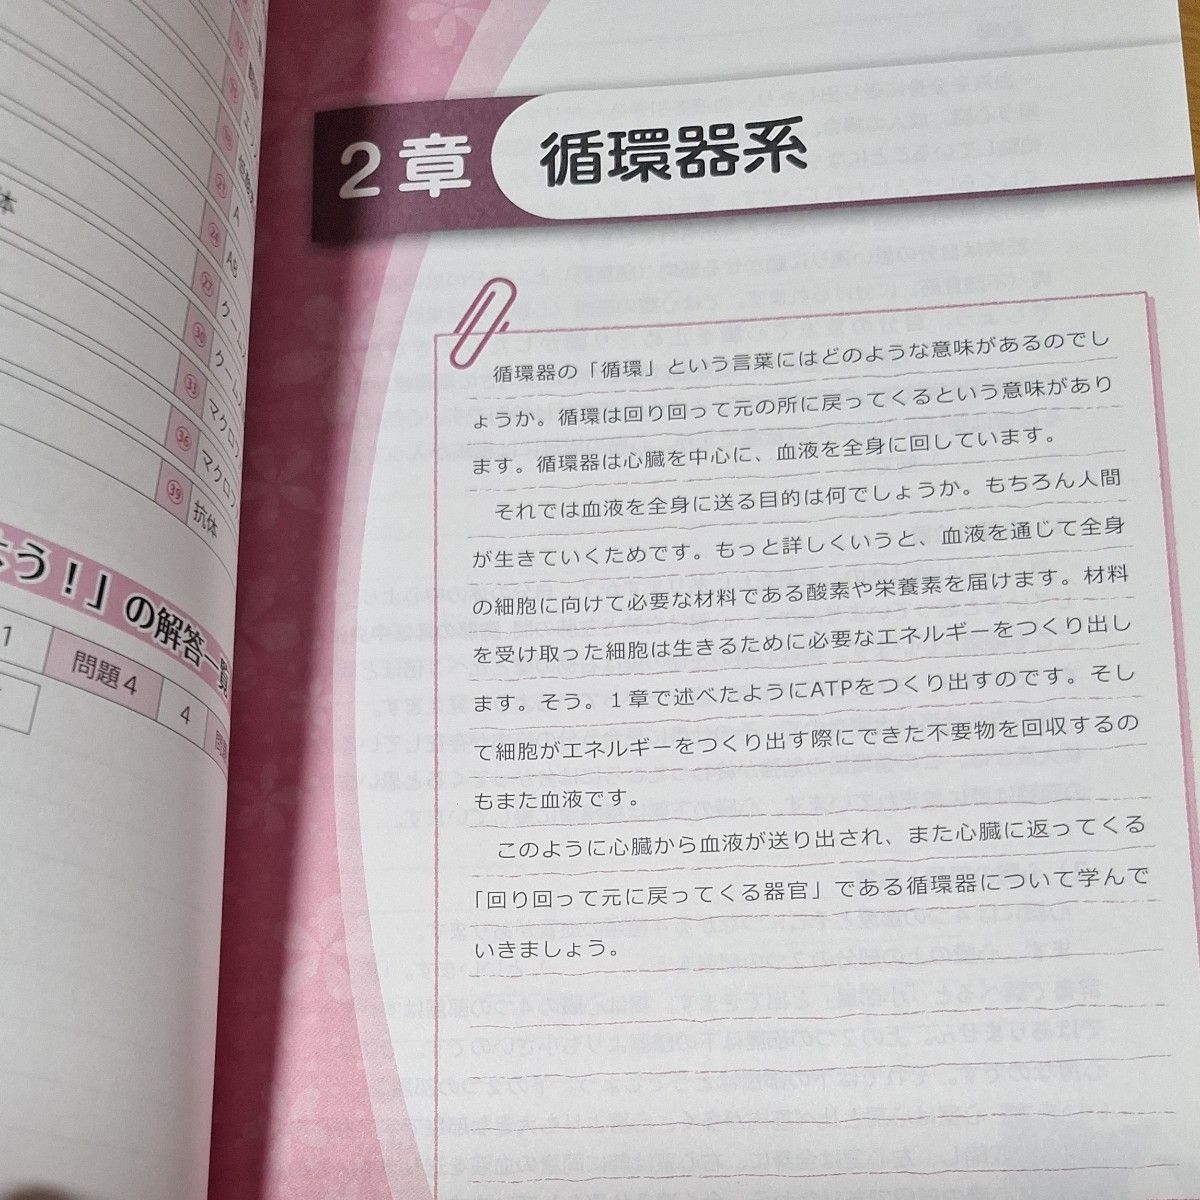 体
⑱
⑳
㉑ A
㉔ AB
㉗ ゲーム
㉚ ゲーム
㉝ マクロ
㊱ マクロフ
㊴ 抗体
よう!」の解答一覧
1 問題4 4 問題
2章 循環器系
循環器の「循環」という言葉にはどのような意味があるのでし
ょうか。循環は回り回って元の所に戻ってくるという意味があり
ます。循環器は心臓を中心に、血液を全身に回しています。
それでは血液を全身に送る目的は何でしょうか。もちろん人間
が生きていくためです。もっと詳しくいうと、血液を通じて全身
の細胞に向けて必要な材料である酸素や栄養素を届けます。材料
を受け取った細胞は生きるために必要なエネルギーをつくり出し
ます。そう。1章で述べたようにATPをつくり出すのです。そし
て細胞がエネルギーをつくり出す際にできた不要物を回収するの
もまた血液です。
このように心臓から血液が送り出され、また心臓に返ってくる
「回り回って元に戻ってくる器官」である循環器について学んで
いきましょう。